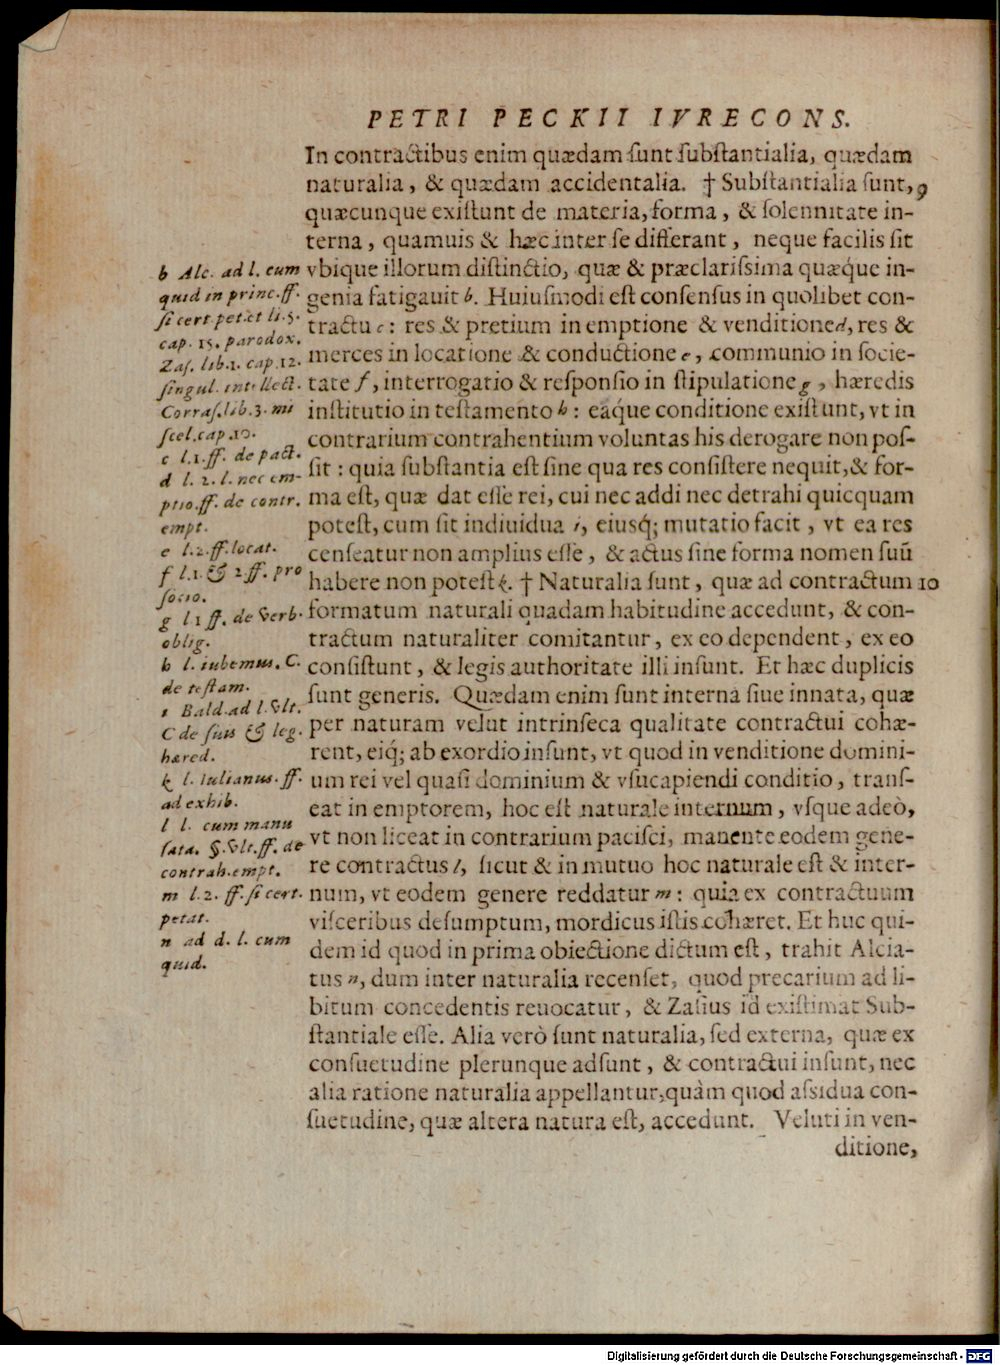 PETRI PECKII IVRECONS.
In contractibus enim quædam ſunt ſubſtantialia, quædam
naturalia, & quædam accidentalia. † Subſtantialia ſunt, 9
quæcunque exiſtunt de materia, forma, & ſolennitate in-
terna, quamuis & hæc inter ſe differant, neque facilis ſit
vbique illorum diſtinctio, quæ & præclariſsima quæq́ue in-
genia fatigauit b. Huiuſmodi eſt conſenſus in quolibet con-
tractu c: res & pretium in emptione & venditione d, res &
merces in locatione & conductione e, communio in ſocie-
tate f, interrogatio & reſponſio in ſtipulatione g, hæredis
inſtitutio in teſtamento h: eaq́ue conditione exiſtunt, vt in
contrarium contrahentium voluntas his derogare non poſ-
ſit: quia ſubſtantia eſt ſine qua res conſiſtere nequit, & for-
ma eſt, quæ dat eſſe rei, cui nec addi nec detrahi quicquam
poteſt, cum ſit indiuidua i, eiusq́; mutatio facit, vt ea res
cenſeatur non amplius eſſe, & actus ſine forma nomen ſuū
habere non poteſt k. † Naturalia ſunt, quæ ad contractum 10
formatum naturali quadam habitudine accedunt, & con-
tractum naturaliter comitantur, ex eo dependent, ex eo
conſiſtunt, & legis authoritate illi inſunt. Et hæc duplicis
ſunt generis. Quædam enim ſunt interna ſiue innata, quæ
per naturam velut intrinſeca qualitate contractui cohæ-
rent, eiq́; ab exordio inſunt, vt quod in venditione domini-
um rei vel quaſi dominium & vſucapiendi conditio, tranſ-
eat in emptorem, hoc eſt naturale internum, vſque adeò,
vt non liceat in contrarium paciſci, manente eodem gene-
re contractus l, ſicut & in mutuo hoc naturale eſt & inter-
num, vt eodem genere reddatur m: quia ex contractuum
viſceribus deſumptum, mordicus iſtis cohæret. Et huc qui-
dem id quod in prima obiectione dictum eſt, trahit Alcia-
tus n, dum inter naturalia recenſet, quod precarium ad li-
bitum concedentis reuocatur, & Zaſius id exiſtimat Sub-
ſtantiale eſſe. Alia verò ſunt naturalia, ſed externa, quæ ex
conſuetudine plerunque adſunt, & contractui inſunt, nec
alia ratione naturalia appellantur, quàm quod aſsidua con-
ſuetudine, quæ altera natura eſt, accedunt. Veluti in ven-
ditione,
b Alc. ad l. cum
quid in princ. ff.
ſi cert. pet. et li. 5.
cap. 15. parodox.
Zaſ. lib. 1. cap. 12.
ſingul. intellect.
Corraſ. lib. 3. mi
ſcel. cap. 10.
c l. 1. ff. de pact.
d l. 2. l. nec em-
ptio. ff. de contr.
empt.
e l. 2. ff. locat.
f l. 1. & 2 ff. pro
ſocio.
g l 1 ff. de verb.
oblig.
h l. iubemus. C.
de teſtam.
i Bald. ad l. vlt.
C de ſuis & leg.
hæred.
k l. Iulianus. ff.
ad exhib.
l l. cum manu
ſata. §. vlt. ff. de
contrah. empt.
m l. 2. ff. ſi cert.
petat.
n ad d. l. cum
quid.
Digitalisierung gefördert durch die Deutsche Forschungsgemeinschaft - DFG